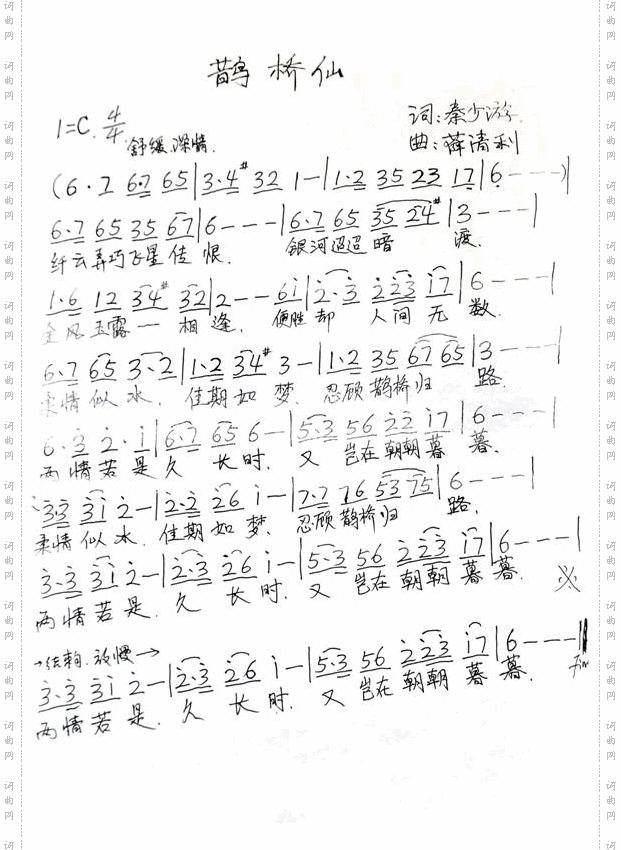 鹊桥仙
1=C 4/4
舒缓 深情.
词:秦少游
曲:薛清利
(6·7 67 65|3·4# 32 1-|1·2 35 23 17|6---)|
6·7 65 35 67|6---|6·7 65 35 24#|3---|
纤云弄巧飞星传恨. 银河迢迢暗渡.
1·6 12 34# 32|2--6i|2·3 223 i7|6---|
金风玉露一相逢. 便胜却人间无数.
6·7 65 3·2|1·2 34# 3-|1·2 35 67 65|3---|
柔情似水. 佳期如梦. 忍顾鹊桥归路.
6·3 2·i|6·7 65 6-|5·3 56 22 i7|6---|
两情若是久长时. 又岂在朝朝暮暮.
33 3i 2-|2·2 26 i-|7·7 76 53 75|6---|
柔情似水. 佳期如梦. 忍顾鹊桥归路.
3·3 3i 2-|2·3 26 i-|5·3 56 223 i7|6---|
两情若是. 久长时. 又岂在朝朝暮暮. ※
→结束句. 放慢→
3·3 3i 2-|2·3 26 i-|5·3 56 223 i7|6---‖
两情若是. 久长时. 又岂在朝朝暮暮. Fin
词曲网